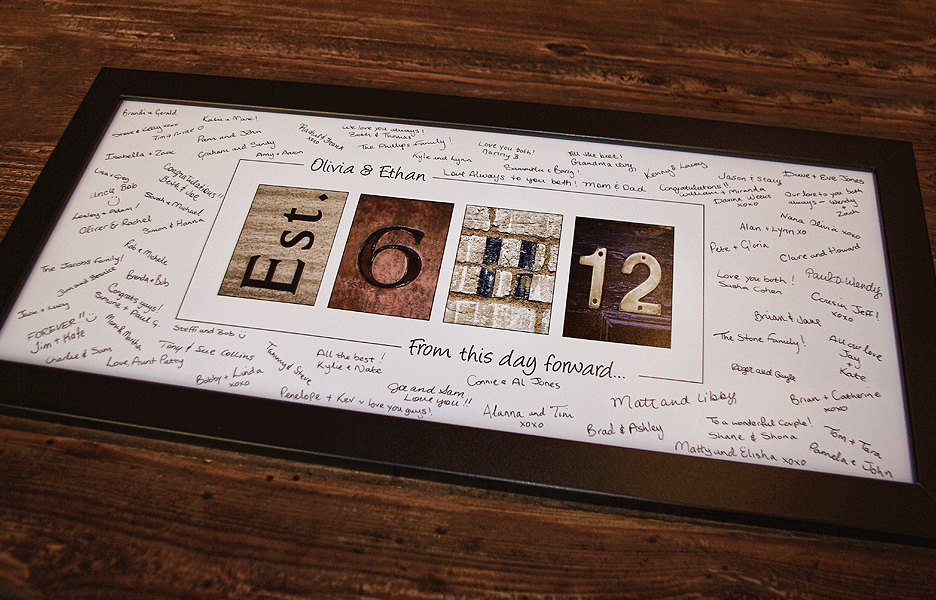 Brandi & Gerald
Katie & Marc!
Steve & Kelly xoxo
Pam and John
Isabella + Zack
Graham and Sandy
Amy + Aaron
We love you always!
Beth & Thomas
The Phillips Family!
Kyle and Lynn
Love you both!
Nanny B
All the best!
Grandma Ivy
Samantha & Barry!
Jason & Stacy
Dave + Eve Jones
Olivia & Ethan
Love Always to you both! Mom & Dad
Congratulations!!
William & Miranda
Donna Weeks
xoxo
Our love to you both
always - Wendy
+
Zach
Congratulations!!
Beth & Joe
Uncle Bob
Sarah & Michael
Oliver & Rachel
Simon & Hanna
Nana Olivia xoxo
Alan + Lynn xo
Pete + Gloria
Claire and Howard
Est.
6
11
12
Rob & Michelle
The Jacobs Family!
Brenda & Bob
Love you both!
Sasha Cohen
Paul & Wendy
Cousin Jeff!
xoxo
Congrats guys!
Simone & Paul G.
Brian & Jane
FOREVER!!
Jim + Kate
Steffi and Bob
The Stone Family!
All our love
Jay
Kate
Charlie & Sam
Love, Aunt Patty
Tony & Sue Collins
Tammy & Steve
All the best!
Kylie & Nate
From this day forward...
Connie & Al Jones
Roger and Gayle
Bobby + Linda
xoxo
Joe and Sam
Love you!!
Penelope + Kev - love you guys!
Matt and Libby
Brian + Catherine
xoxo
Alanna and Tim
xoxo
Brad & Ashley
To a wonderful Couple!
Shane & Shona
Tom + Tara
Matty and Elisha xoxo
Pamela & John